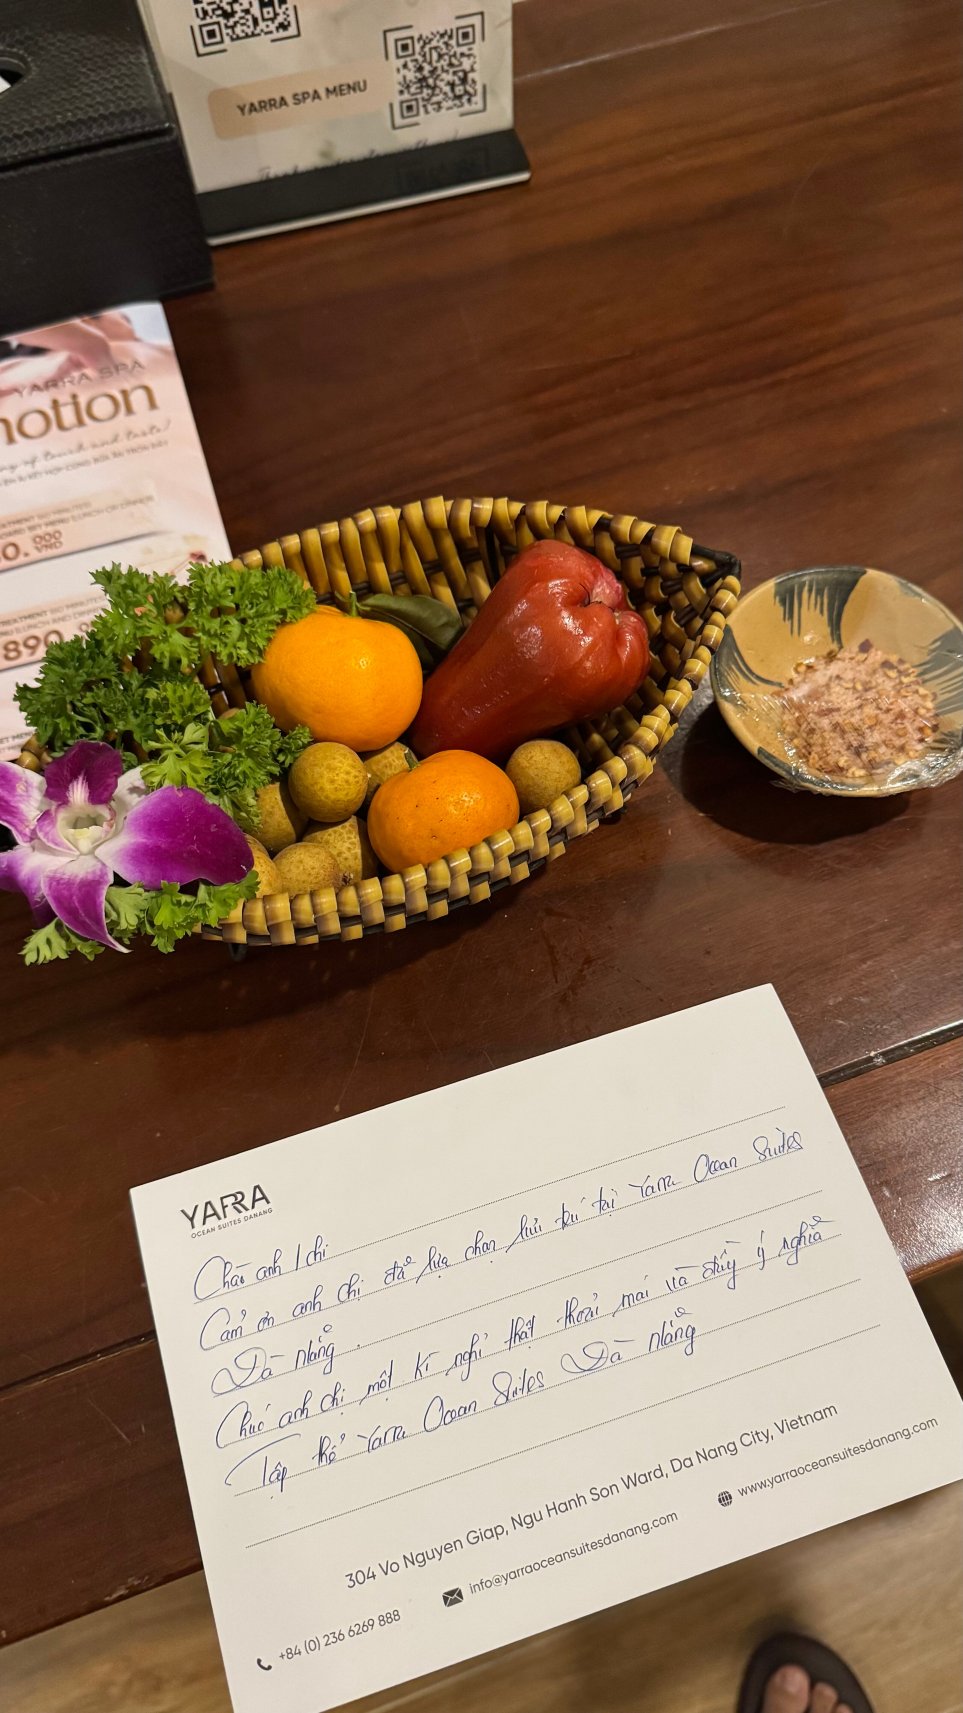 YARRA SPA MENU
YARRA SPA
notion
ng of touch and taste!
0.000
VND
890.
YARRA
OCEAN SUITES DANANG
Chào anh / chị
Cảm ơn anh chị đã lựa chọn lưu trú tại Yarra Ocean Suites
Đà Nẵng.
Chúc anh chị một kì nghỉ thật thoải mái và đầy ý nghĩa
Tập thể Yarra Ocean Suites Đà Nẵng
304 Vo Nguyen Giap, Ngu Hanh Son Ward, Da Nang City, Vietnam
+84 (0) 236 6269 888
info@yarraoceansuitesdanang.com
www.yarraoceansuitesdanang.com